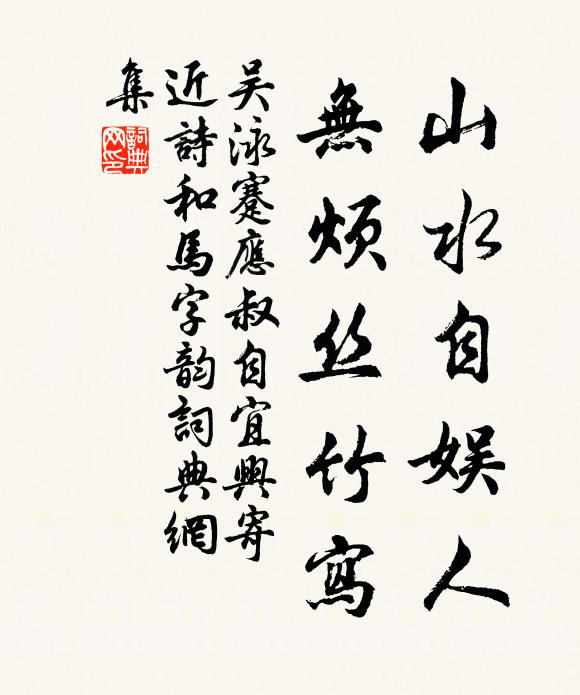 山水自娱人
無烦丝竹寫
吴泳蹇應叔自宜興寄
近詩和馬字韵詞典網
集
詞典
网印